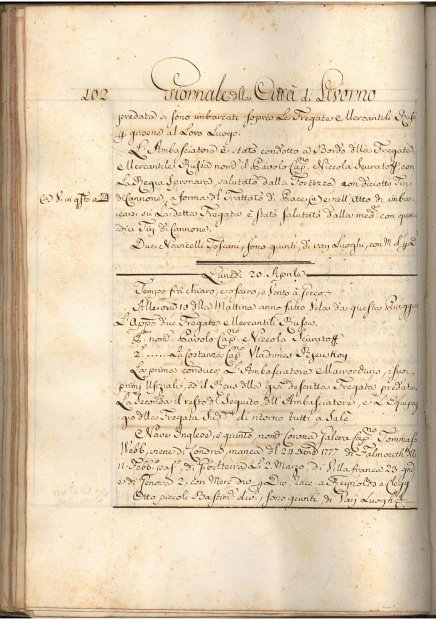 102 Giornale della Città di Livorno
predata si sono imbarcati sopra le Fregate Mercantili Russe
al Loro Luogo.
L'Ambasciatore è stato condotto a Bordo della Fregata
Mercantile Russa nom.ª il Paolo Cap.no Niccola Scuratoff con
La Regia Spronara, salutato dalla Fortezza con diciotto Tiri
di Cannone, a forma del Trattato di Pace, e nell'Atto di imbar=
carsi su La detta Fregata è stato salutato dalla med.ª con quin=
dici Tiri di Cannone.
Due Navicelli Toscani, sono giunti di varj Luoghi, con M.
Lunedì 20 Aprile
Tempo frà chiaro, e oscuro, e vento à Greco.
All'ora 10 della Mattina anno fatto Vela da questa Spiagg.ª
L'App.e due Fregate Mercantili Russe.
P.ª nom.ª Paolo Cap.no Niccola Scuratoff
2. ...... La Costanza Cap.no Vladimes
La prima conduce L'Ambasciatore Marrocchino, i suoi
primi Ufiziali, ed il Rais della già descritta Fregata predata
La seconda il resto del Seguito dell'Ambasciatore, e L'Equipag=
gio della Fregata Sud.ª di ritorno tutti a Salè.
Nave Inglese, è giunta nom.ª Corona Galera Cap.no Tommaso
Webb, viene di Londra, manca del 24 Nov.e 1777 di Falmouth dello
11 Febb.º pas.º, di Gibilterra Li 2 Marzo, di Villa franca 23 d.º
e di Genova 2, con Mer. p Race a Reynolds e Clegg
Otto piccoli Bastim.ti sono giunti di Varj Luoghi